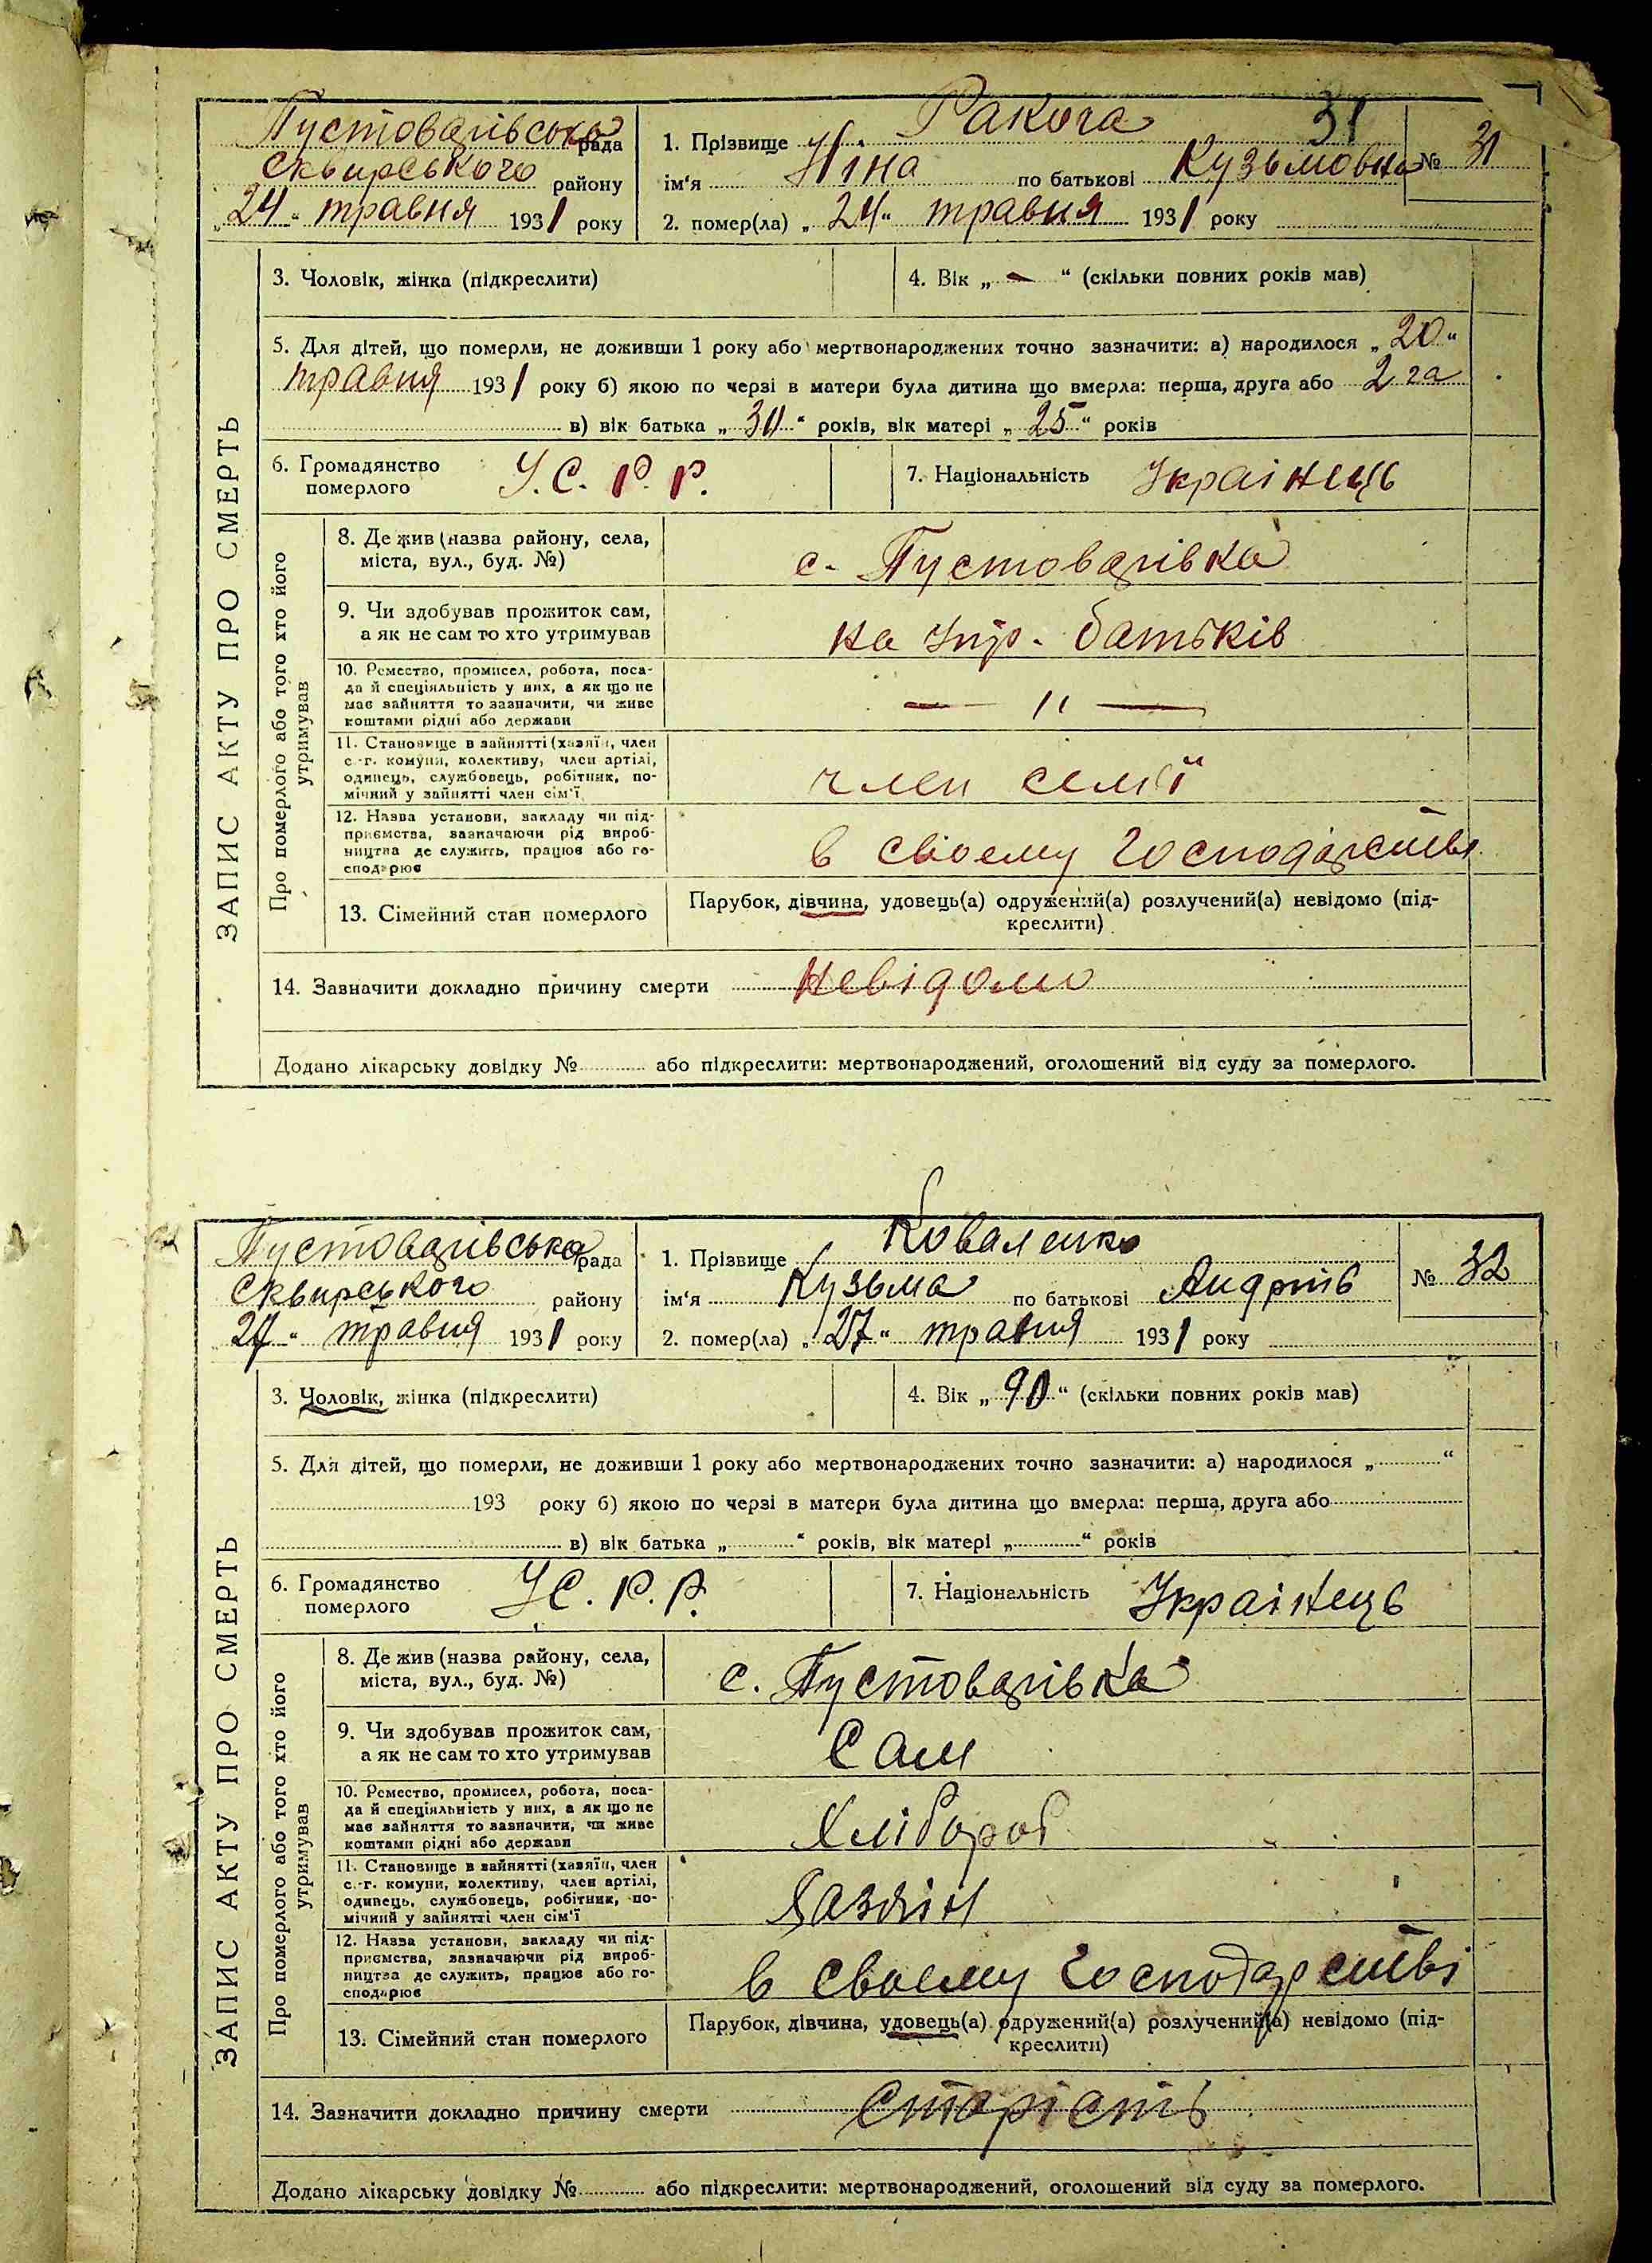 31
Пустоварівська рада
Сквирського району
„24“ травня 1931 року
1. Прізвище Ракога
ім'я Ніна по батькові Кузьмовна
2. помер(ла) „24“ травня 1931 року
№ 31
ЗАПИС АКТУ ПРО СМЕРТЬ
3. Чоловік, жінка (підкреслити)
4. Вік „ — “ (скільки повних років мав)
5. Для дітей, що померли, не доживши 1 року або мертвонароджених точно зазначити: а) народилося „20“
травня 1931 року б) якою по черзі в матери була дитина що вмерла: перша, друга або 2 га
в) вік батька „30“ років, вік матері „25“ років
6. Громадянство
померлого
У.С.Р.Р.
7. Національність Українець
Про померлого або того хто його
утримував
8. Де жив (назва району, села,
міста, вул., буд. №)
с. Пустоварівка
9. Чи здобував прожиток сам,
а як не сам то хто утримував
на утр. батьків
10. Ремество, промисел, робота, поса-
да й спеціяльність у них, а як що не
має зайняття то зазначити, чи живе
коштами рідні або держави
— " —
11. Становище в зайнятті (хазяїн, член
с.-г. комуни, колективу, член артілі,
одинець, службовець, робітник, по-
мічний у зайнятті член сім'ї
член семії
12. Назва установи, закладу чи під-
приємства, зазначаючи рід вироб-
ництва де служить, працює або го-
сподарює
в своєму господарстві
13. Сімейний стан померлого
Парубок, дівчина, удовець(а) одружений(а) розлучений(а) невідомо (під-
креслити)
14. Зазначити докладно причину смерти невідомо
Додано лікарську довідку № або підкреслити: мертвонароджений, оголошений від суду за померлого.
Пустоварівська рада
Сквирського району
„27“ травня 1931 року
1. Прізвище Коваленко
ім'я Кузьма по батькові Андріїв
2. помер(ла) „27“ травня 1931 року
№ 32
ЗАПИС АКТУ ПРО СМЕРТЬ
3. Чоловік, жінка (підкреслити)
4. Вік „90“ (скільки повних років мав)
5. Для дітей, що померли, не доживши 1 року або мертвонароджених точно зазначити: а) народилося „ “
193 року б) якою по черзі в матери була дитина що вмерла: перша, друга або
в) вік батька „ “ років, вік матері „ “ років
6. Громадянство
померлого
У.С.Р.Р.
7. Національність Українець
Про померлого або того хто його
утримував
8. Де жив (назва району, села,
міста, вул., буд. №)
с. Пустоварівка
9. Чи здобував прожиток сам,
а як не сам то хто утримував
Сам
10. Ремество, промисел, робота, поса-
да й спеціяльність у них, а як що не
має зайняття то зазначити, чи живе
коштами рідні або держави
Хлібороб
11. Становище в зайнятті (хазяїн, член
с.-г. комуни, колективу, член артілі,
одинець, службовець, робітник, по-
мічний у зайнятті член сім'ї
Хазяїн
12. Назва установи, закладу чи під-
приємства, зазначаючи рід вироб-
ництва де служить, працює або го-
сподарює
в своєму господарстві
13. Сімейний стан померлого
Парубок, дівчина, удовець(а) одружений(а) розлучений(а) невідомо (під-
креслити)
14. Зазначити докладно причину смерти старість
Додано лікарську довідку № або підкреслити: мертвонароджений, оголошений від суду за померлого.